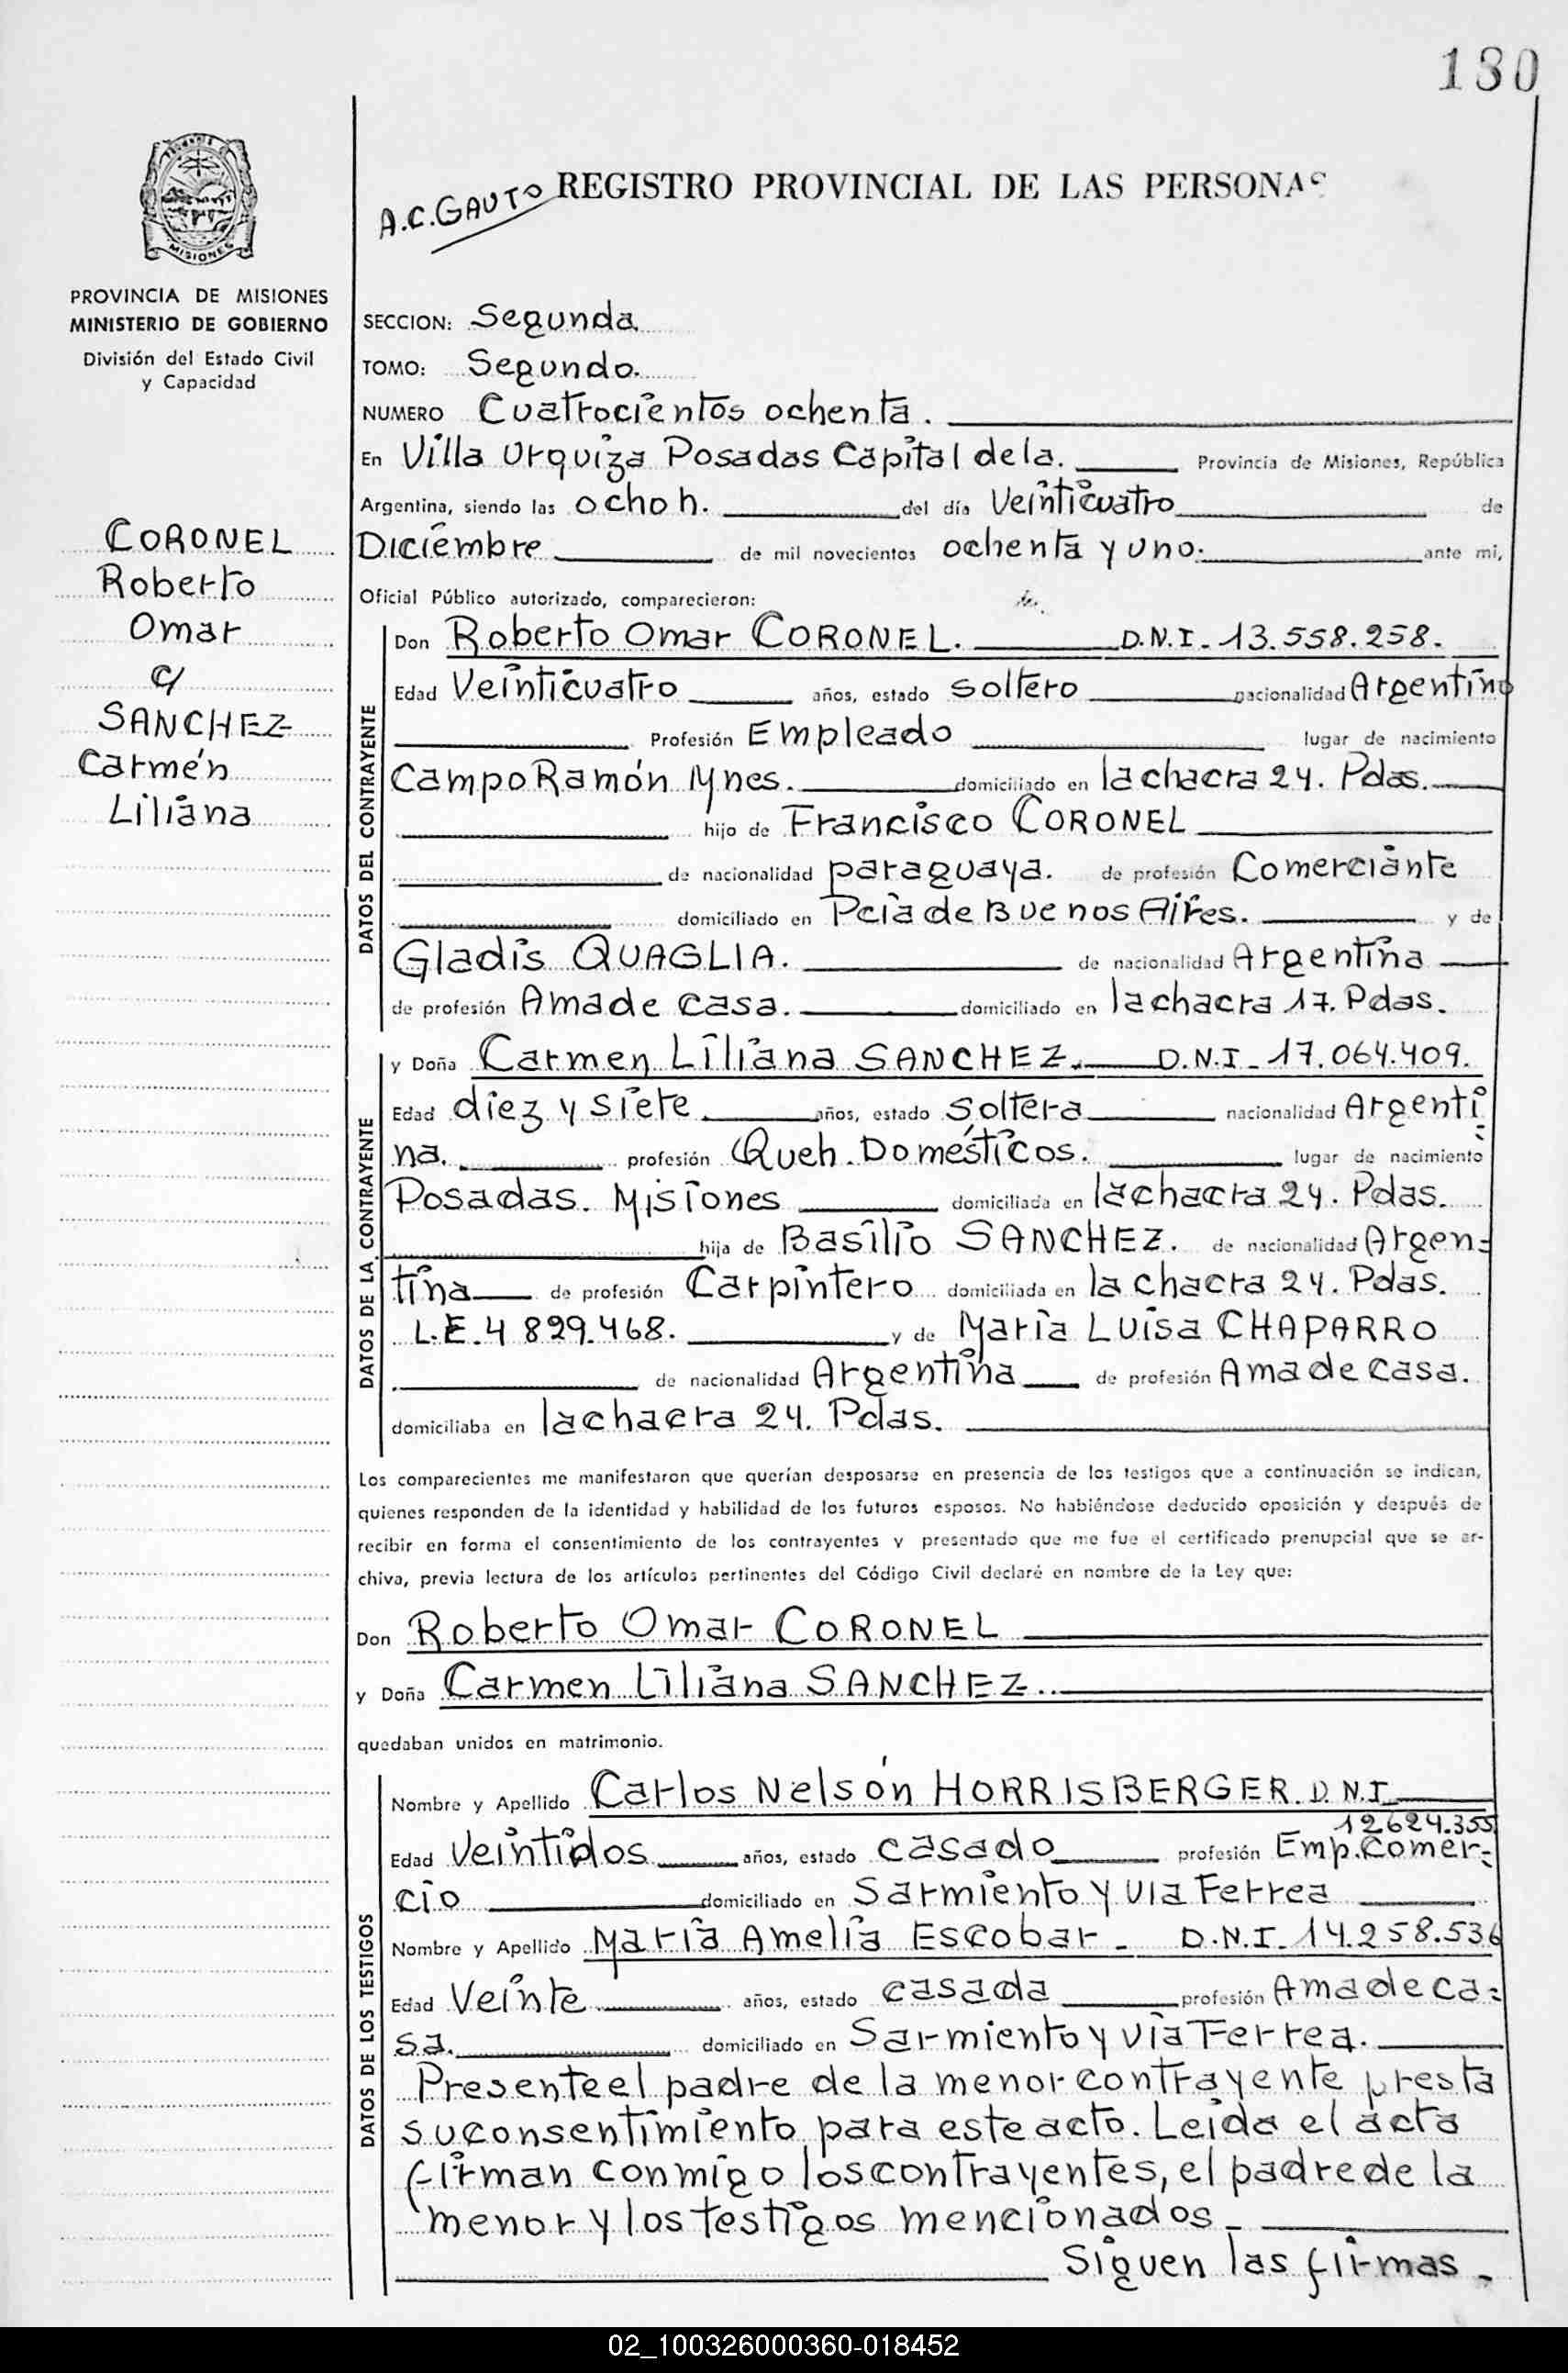 180
A.C. GAUTO
REGISTRO PROVINCIAL DE LAS PERSONAS
MISIONES
PROVINCIA DE MISIONES
MINISTERIO DE GOBIERNO
División del Estado Civil
y Capacidad
CORONEL
Roberto
Omar
c/
SANCHEZ
Carmen
Liliana
SECCION: Segunda
TOMO: Segundo.
NUMERO Cuatrocientos ochenta.
En Villa Urquiza Posadas Capital de la. Provincia de Misiones, República
Argentina, siendo las ocho h. del día Veinticuatro de
Diciembre de mil novecientos ochenta y uno. ante mi,
Oficial Público autorizado, comparecieron:
DATOS DEL CONTRAYENTE
Don Roberto Omar CORONEL. D.N.I. 13.558.258.
Edad Veinticuatro años, estado soltero nacionalidad Argentino
Profesión Empleado lugar de nacimiento
Campo Ramón Mnes. domiciliado en la chacra 24. Pdas.
hijo de Francisco CORONEL
de nacionalidad paraguaya. de profesión Comerciante
domiciliado en Pcia de Buenos Aires. y de
Gladis QUAGLIA. de nacionalidad Argentina
de profesión Ama de casa. domiciliado en la chacra 17. Pdas.
DATOS DE LA CONTRAYENTE
y Doña Carmen Liliana SANCHEZ. D.N.I. 17.064.409.
Edad diez y siete años, estado soltera nacionalidad Argenti
na. profesión Queh. Domésticos. lugar de nacimiento
Posadas. Misiones domiciliada en la chacra 24. Pdas.
hija de Basilio SANCHEZ. de nacionalidad Argen=
tina de profesión Carpintero domiciliada en la chacra 24. Pdas.
L.E. 4 829.468. y de María Luisa CHAPARRO
de nacionalidad Argentina de profesión Ama de casa.
domiciliaba en la chacra 24. Pdas.
Los comparecientes me manifestaron que querían desposarse en presencia de los testigos que a continuación se indican,
quienes responden de la identidad y habilidad de los futuros esposos. No habiéndose deducido oposición y después de
recibir en forma el consentimiento de los contrayentes y presentado que me fue el certificado prenupcial que se ar-
chiva, previa lectura de los artículos pertinentes del Código Civil declaré en nombre de la Ley que:
Don Roberto Omar CORONEL
y Doña Carmen Liliana SANCHEZ.
quedaban unidos en matrimonio.
DATOS DE LOS TESTIGOS
Nombre y Apellido Carlos Nelson HORRISBERGER. D.N.I
12624.355
Edad Veintidos años, estado casado profesión Emp. Comer=
cio domiciliado en Sarmiento y vía Ferrea
Nombre y Apellido María Amelia Escobar - D.N.I. 14.258.536
Edad Veinte años, estado casada profesión Ama de ca=
sa. domiciliado en Sarmiento y vía Ferrea.
Presente el padre de la menor contrayente presta
su consentimiento para este acto. Leida el acta
firman conmigo los contrayentes, el padre de la
menor y los testigos mencionados -
Siguen las firmas -
02_100326000360-018452